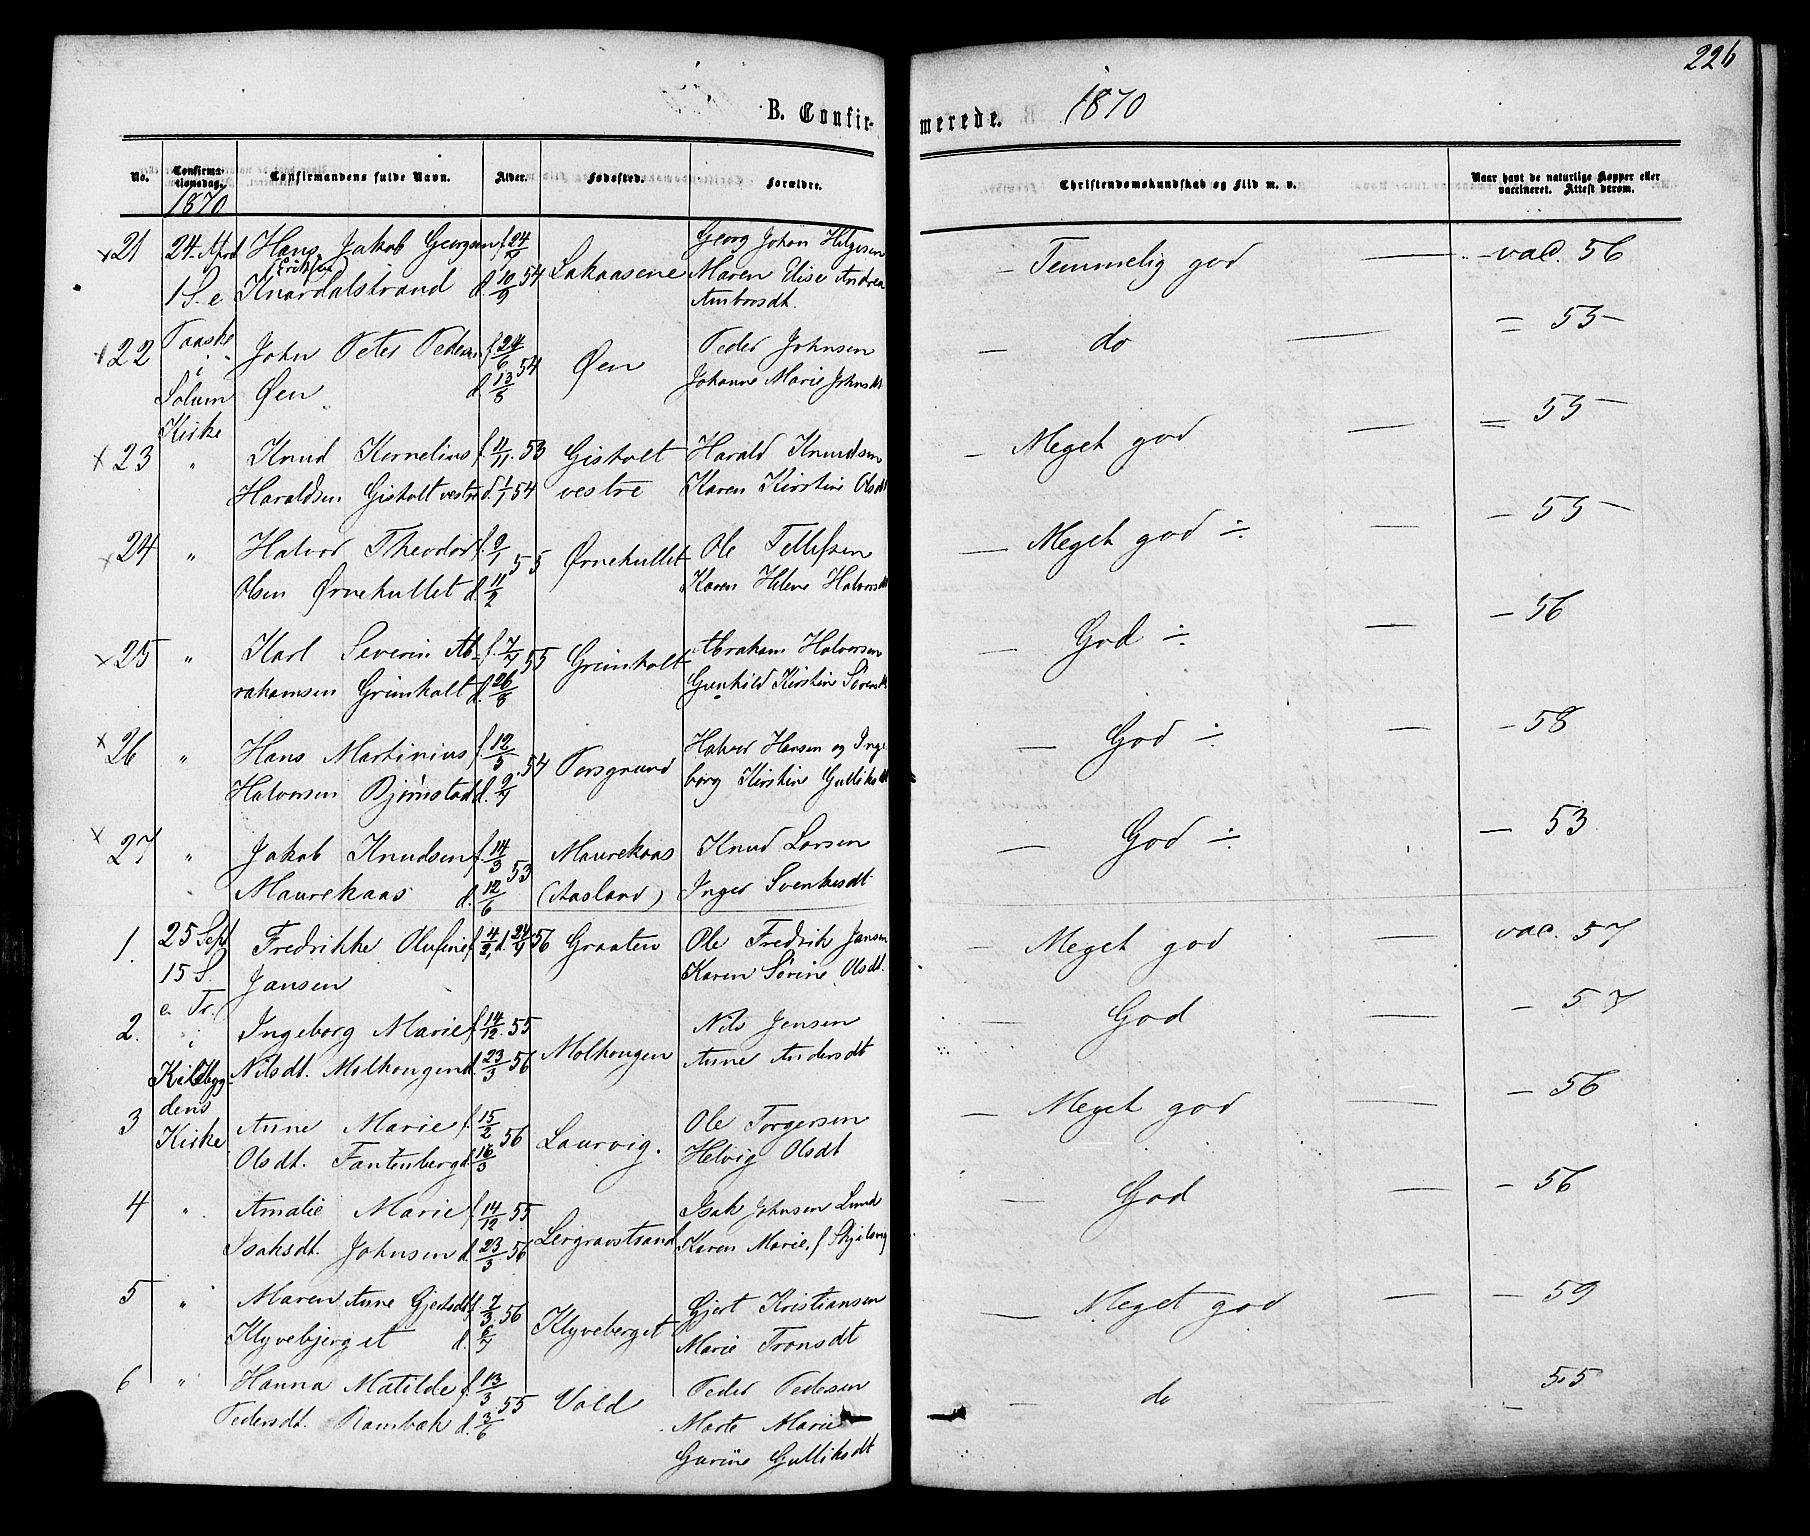 226
B. Confir-
merede.
1870
No.
Confirma-
tionsdag.
1870
Confirmandens fulde Navn.
Alder.
Fødested.
Forældre.
Christendomskundskab og Flid m. v.
Naar havt de naturlige Kopper eller
vaccineret. Attest derom.
21 24 April Hans Jakob Georgsen f. 24/7 Georg Johan Helgesen
(Eriksen) 54 Lakaasene — Temmelig god — vac. 56
1 S. e Knardalstrand d. 10/9 Maren Elise Andrea
Ambrosdt.
22 Paaske John Peter Pedersen f. 24/6 54 Øen Peder Johnsen — do — = 55
i Solum Øen d. 13/8 Johanne Marie Johnsdt
Kirke
23 " Knud Kornelius f. 11/11 53 Gisholt Harald Knudsen — Meget god — = 55
Haraldsen Gisholt vestre d. 1/1 54 vestre Karen Kirstine Olsdt
24 " Halvor Theodor f. 9/1 55 Ørnehullet Ole Tellefsen — Meget god ÷ — 55
Olsen Ørnehullet d. 11/2 Karen Helene Halvorsdt
25 " Karl Severin Ab- f. 7/7 55 Grimholt Abraham Halvorsen — God ÷ — 56
rahamsen Grimholt d. 26/8 Gunhild Kirstine Sörensdt
26 " Hans Martinius f. 12/5 54 Porsgrund Halvor Hansen og Inge — God ÷ — 58
Halvorsen Bjørnstad d. 9/7 borg Kirstine Gulliksdt
27 " Jakob Knudsen f. 14/3 53 Maurekaas Knud Larsen — God ÷ — 53
Maurekaas d. 12/6 (Aasland) Inger Svenkesdt
1. 25 Sept Fredrikke Olufine f. 4/2 d. 24/4 56 Graaten Ole Fredrik Jansen — Meget god — vac. 57
15 S. Jansen Karen Sörine Olsdt.
e. Tr.
2. i Ingeborg Marie f. 14/12 55 Molhougen Nils Jensen — God — 57
Kilebyg- Nilsdt. Molhougen d. 23/3 56 Anne Andersdt
dens
3 Kirke Anne Marie f. 15/2 56 Laurvig. Ole Torgersen — Meget god — 56
Olsdt. Fantenberg d. 16/3 Helvig Olsdt
4 " Amalie Marie f. 14/12 55 Lergravstrand Isak Johnsen Lund — God — 56
Isaksdt. Johnsen d. 23/3 56 Karen Marie f Skjelsvig
5 " Maren Anne Gjertsdt f. 7/3 56 Klyveberget Gjert Kristiansen — Meget god — 59
Klyvebjerget d. 6/7 Marie Tronsdt
6 " Hanna Matilde f. 13/3 55 Vold Peder Pedersen — do — 55
Pedersdt. Rambæk d. 3/6 Marte Marie
Gurine Gulliksdt